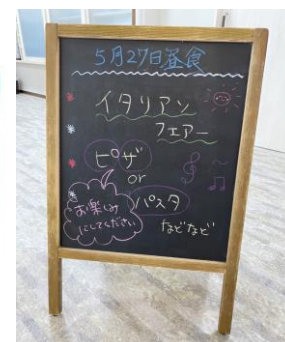 5月27日昼食
イタリアン
フェアー
ピザ
or
パスタ
などなど
お楽しみ
にしてください